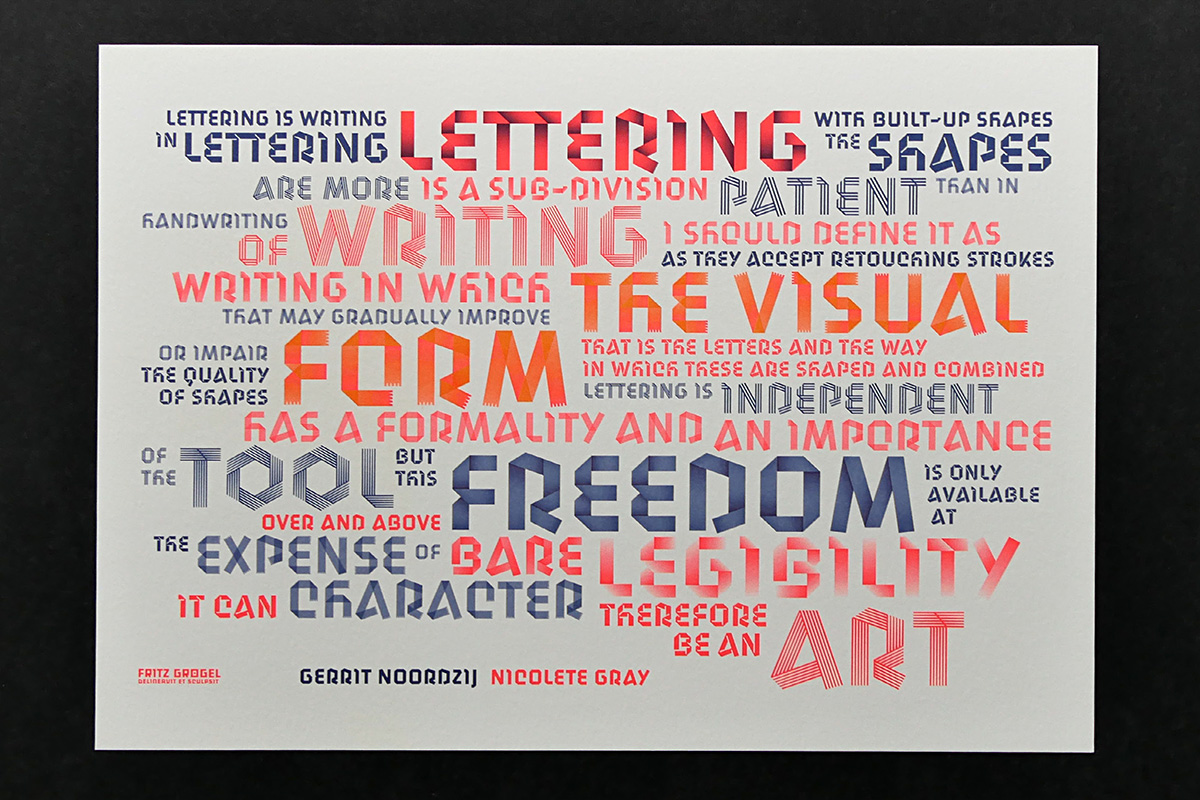 LETTERING IS WRITING LETTERING WITH BUILT-UP SHAPES
IN LETTERING THE SHAPES
ARE MORE IS A SUB-DIVISION PATIENT THAN IN
HANDWRITING OF WRITING I SHOULD DEFINE IT AS
AS THEY ACCEPT RETOUCHING STROKES
WRITING IN WHICH THE VISUAL
THAT MAY GRADUALLY IMPROVE
OR IMPAIR FORM THAT IS THE LETTERS AND THE WAY
THE QUALITY IN WHICH THESE ARE SHAPED AND COMBINED
OF SHAPES LETTERING IS INDEPENDENT
HAS A FORMALITY AND AN IMPORTANCE
OF THE TOOL BUT THIS FREEDOM IS ONLY AVAILABLE AT
OVER AND ABOVE
THE EXPENSE OF BARE LEGIBILITY
IT CAN CHARACTER THEREFORE
BE AN ART
FRITZ GROGEL
DELINEAVIT ET SCULPSIT
GERRIT NOORDZIJ NICOLETE GRAY